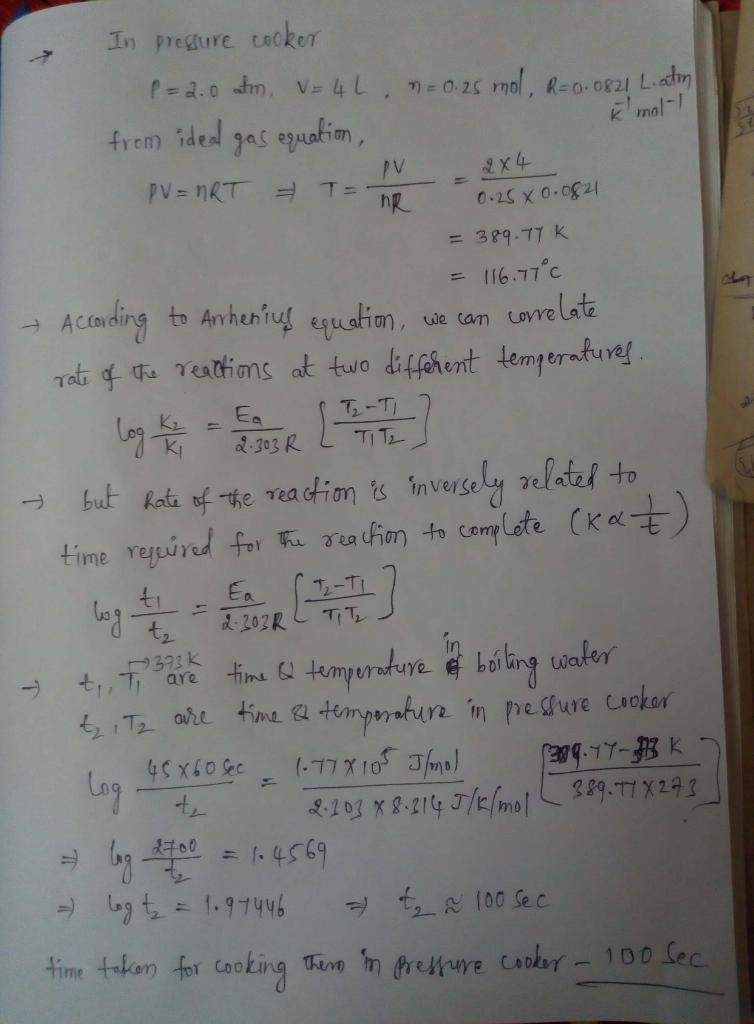 → In pressure cooker
P = 2.0 atm, V = 4 L, n = 0.25 mol, R = 0.0821 L.atm K⁻¹ mol⁻¹
from ideal gas equation,
PV = nRT ⇒ T = PV / nR = 2 × 4 / 0.25 × 0.0821
= 389.77 K
= 116.77°C
→ According to Arrhenius equation, we can correlate
rate of the reactions at two different temperatures.
log K₂/K₁ = Ea / 2.303 R [T₂ - T₁ / T₁T₂]
→ but Rate of the reaction is inversely related to
time required for the reaction to complete (K ∝ 1/t)
log t₁/t₂ = Ea / 2.303 R [T₂ - T₁ / T₁T₂]
→ t₁, T₁ → 373 K are time & temperature in boiling water
t₂, T₂ are time & temperature in pressure cooker
log 45 × 60 sec / t₂ = 1.77 × 10⁵ J/mol / 2.303 × 8.314 J/K/mol [389.77 - 373 K / 389.77 × 273]
⇒ log 2700 / t₂ = 1.4569
⇒ log t₂ = 1.97446 ⇒ t₂ ≈ 100 sec
time taken for cooking them in pressure cooker - 100 Sec